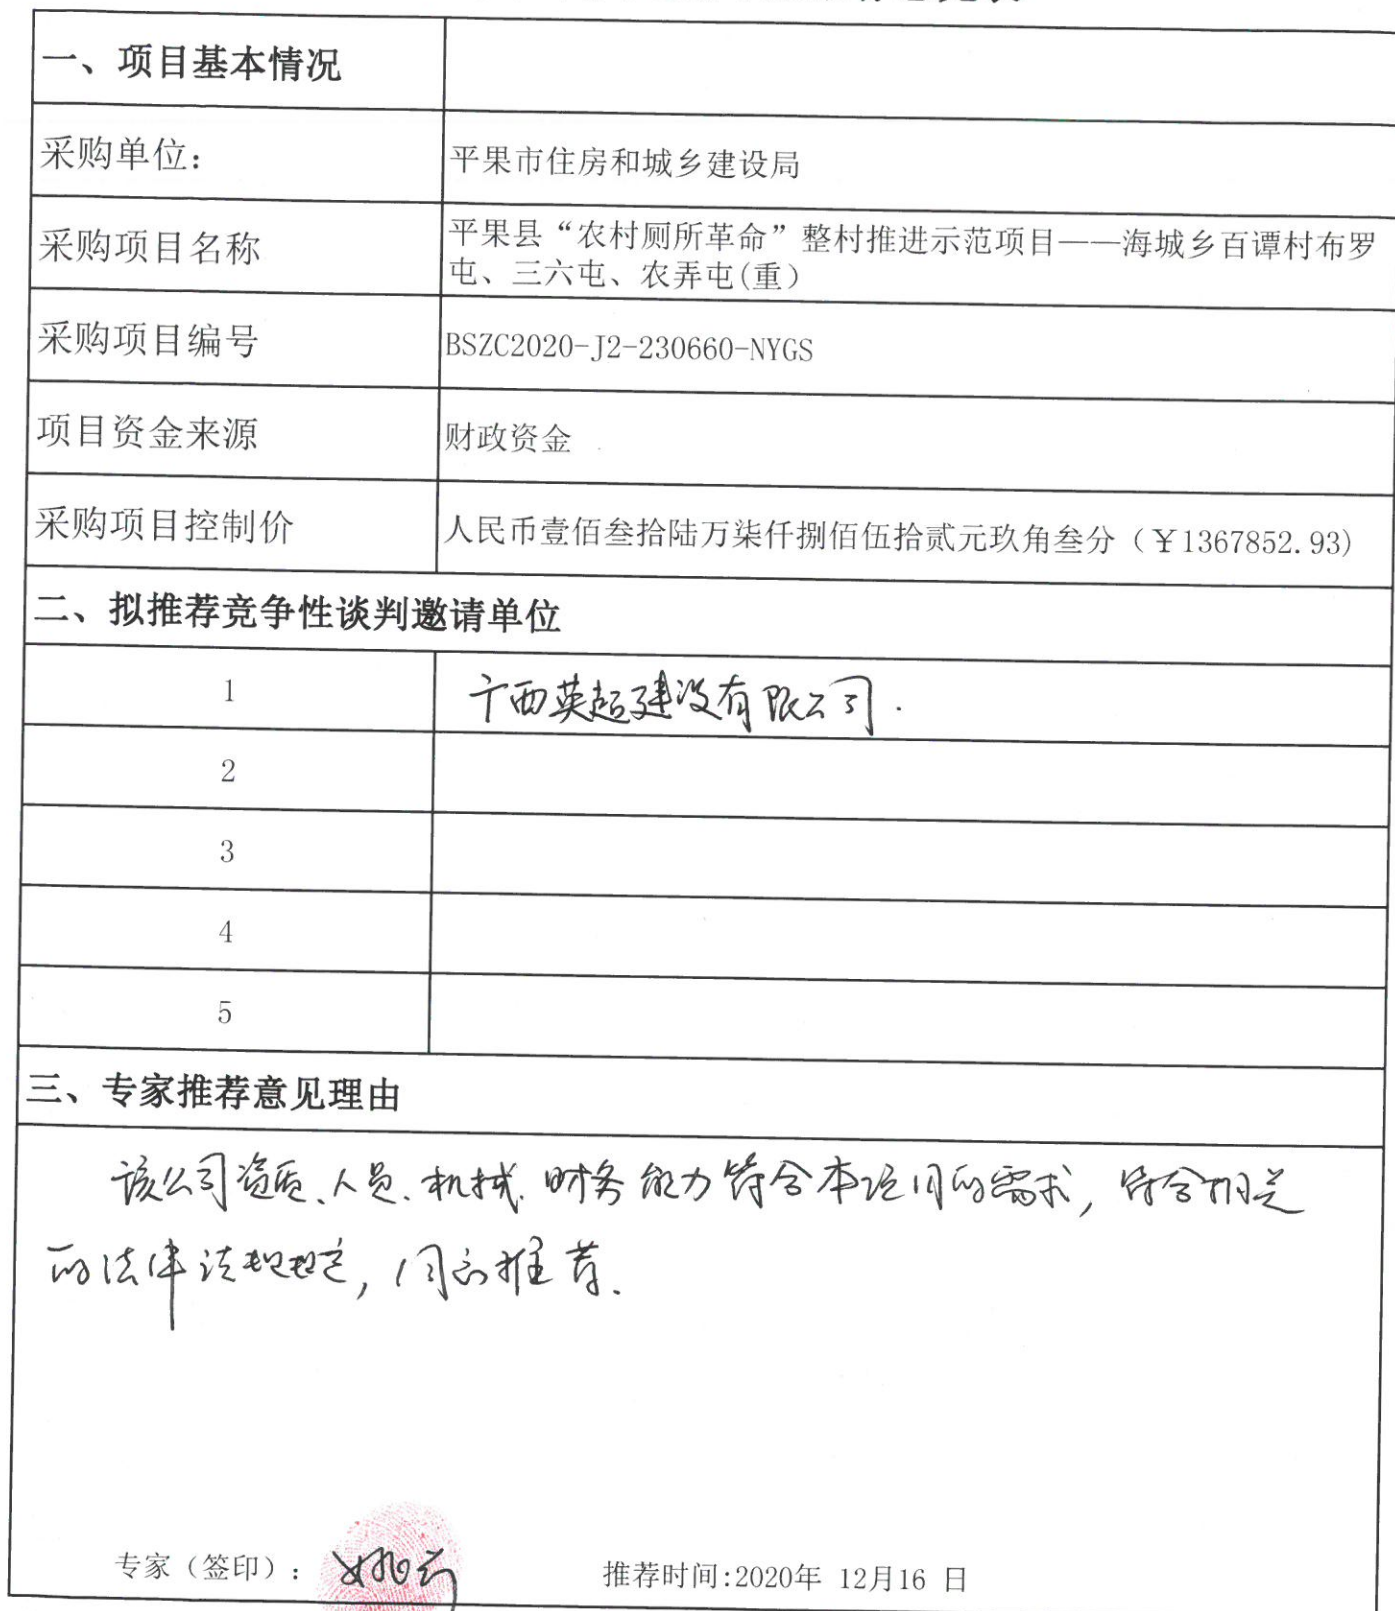 一、项目基本情况
采购单位：
平果市住房和城乡建设局
采购项目名称
平果县“农村厕所革命”整村推进示范项目——海城乡百谭村布罗
屯、三六屯、农弄屯(重）
采购项目编号
BSZC2020-J2-230660-NYGS
项目资金来源
财政资金
采购项目控制价
人民币壹佰叁拾陆万柒仟捌佰伍拾贰元玖角叁分（￥1367852.93）
二、拟推荐竞争性谈判邀请单位
1
广西英超建设有限公司.
2
3
4
5
三、专家推荐意见理由
该公司资质、人员、机械、财务能力符合本项目的需求，符合相关
的法律法规规定，同意推荐.
专家（签印）：
推荐时间:2020年 12月16 日